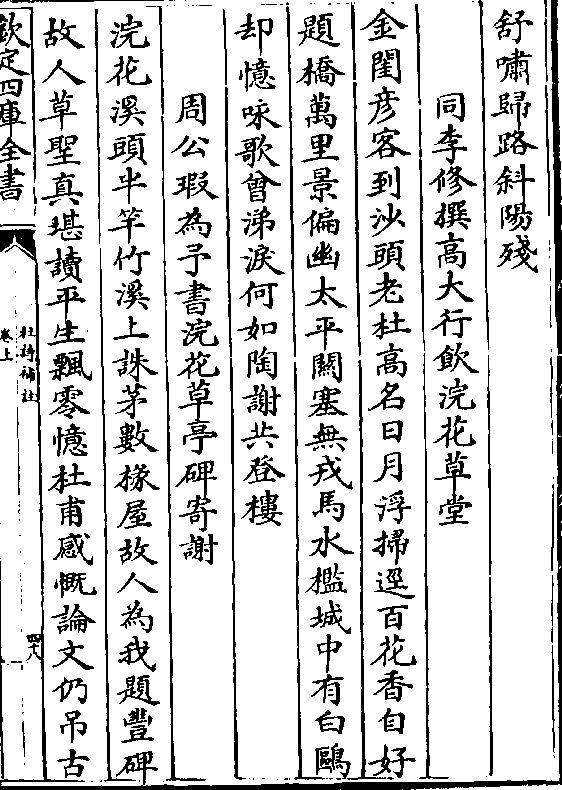 舒嘯歸路斜陽殘
同李修撰高大行飲浣花草堂
金閨彦客到沙頭老杜高名日月浮掃逕百花香自好
題橋萬里景偏幽太平闗塞無戎馬水檻城中有白鷗
却憶咏歌曾涕淚何如陶謝共登樓
周公瑕為予書浣花草亭碑寄謝
浣花溪頭半竿竹溪上誅茅數椽屋故人為我題豐碑
故人草聖真堪讀平生飄零憶杜甫感慨論文仍吊古
欽定四庫全書
杜詩補註
卷上
四十八